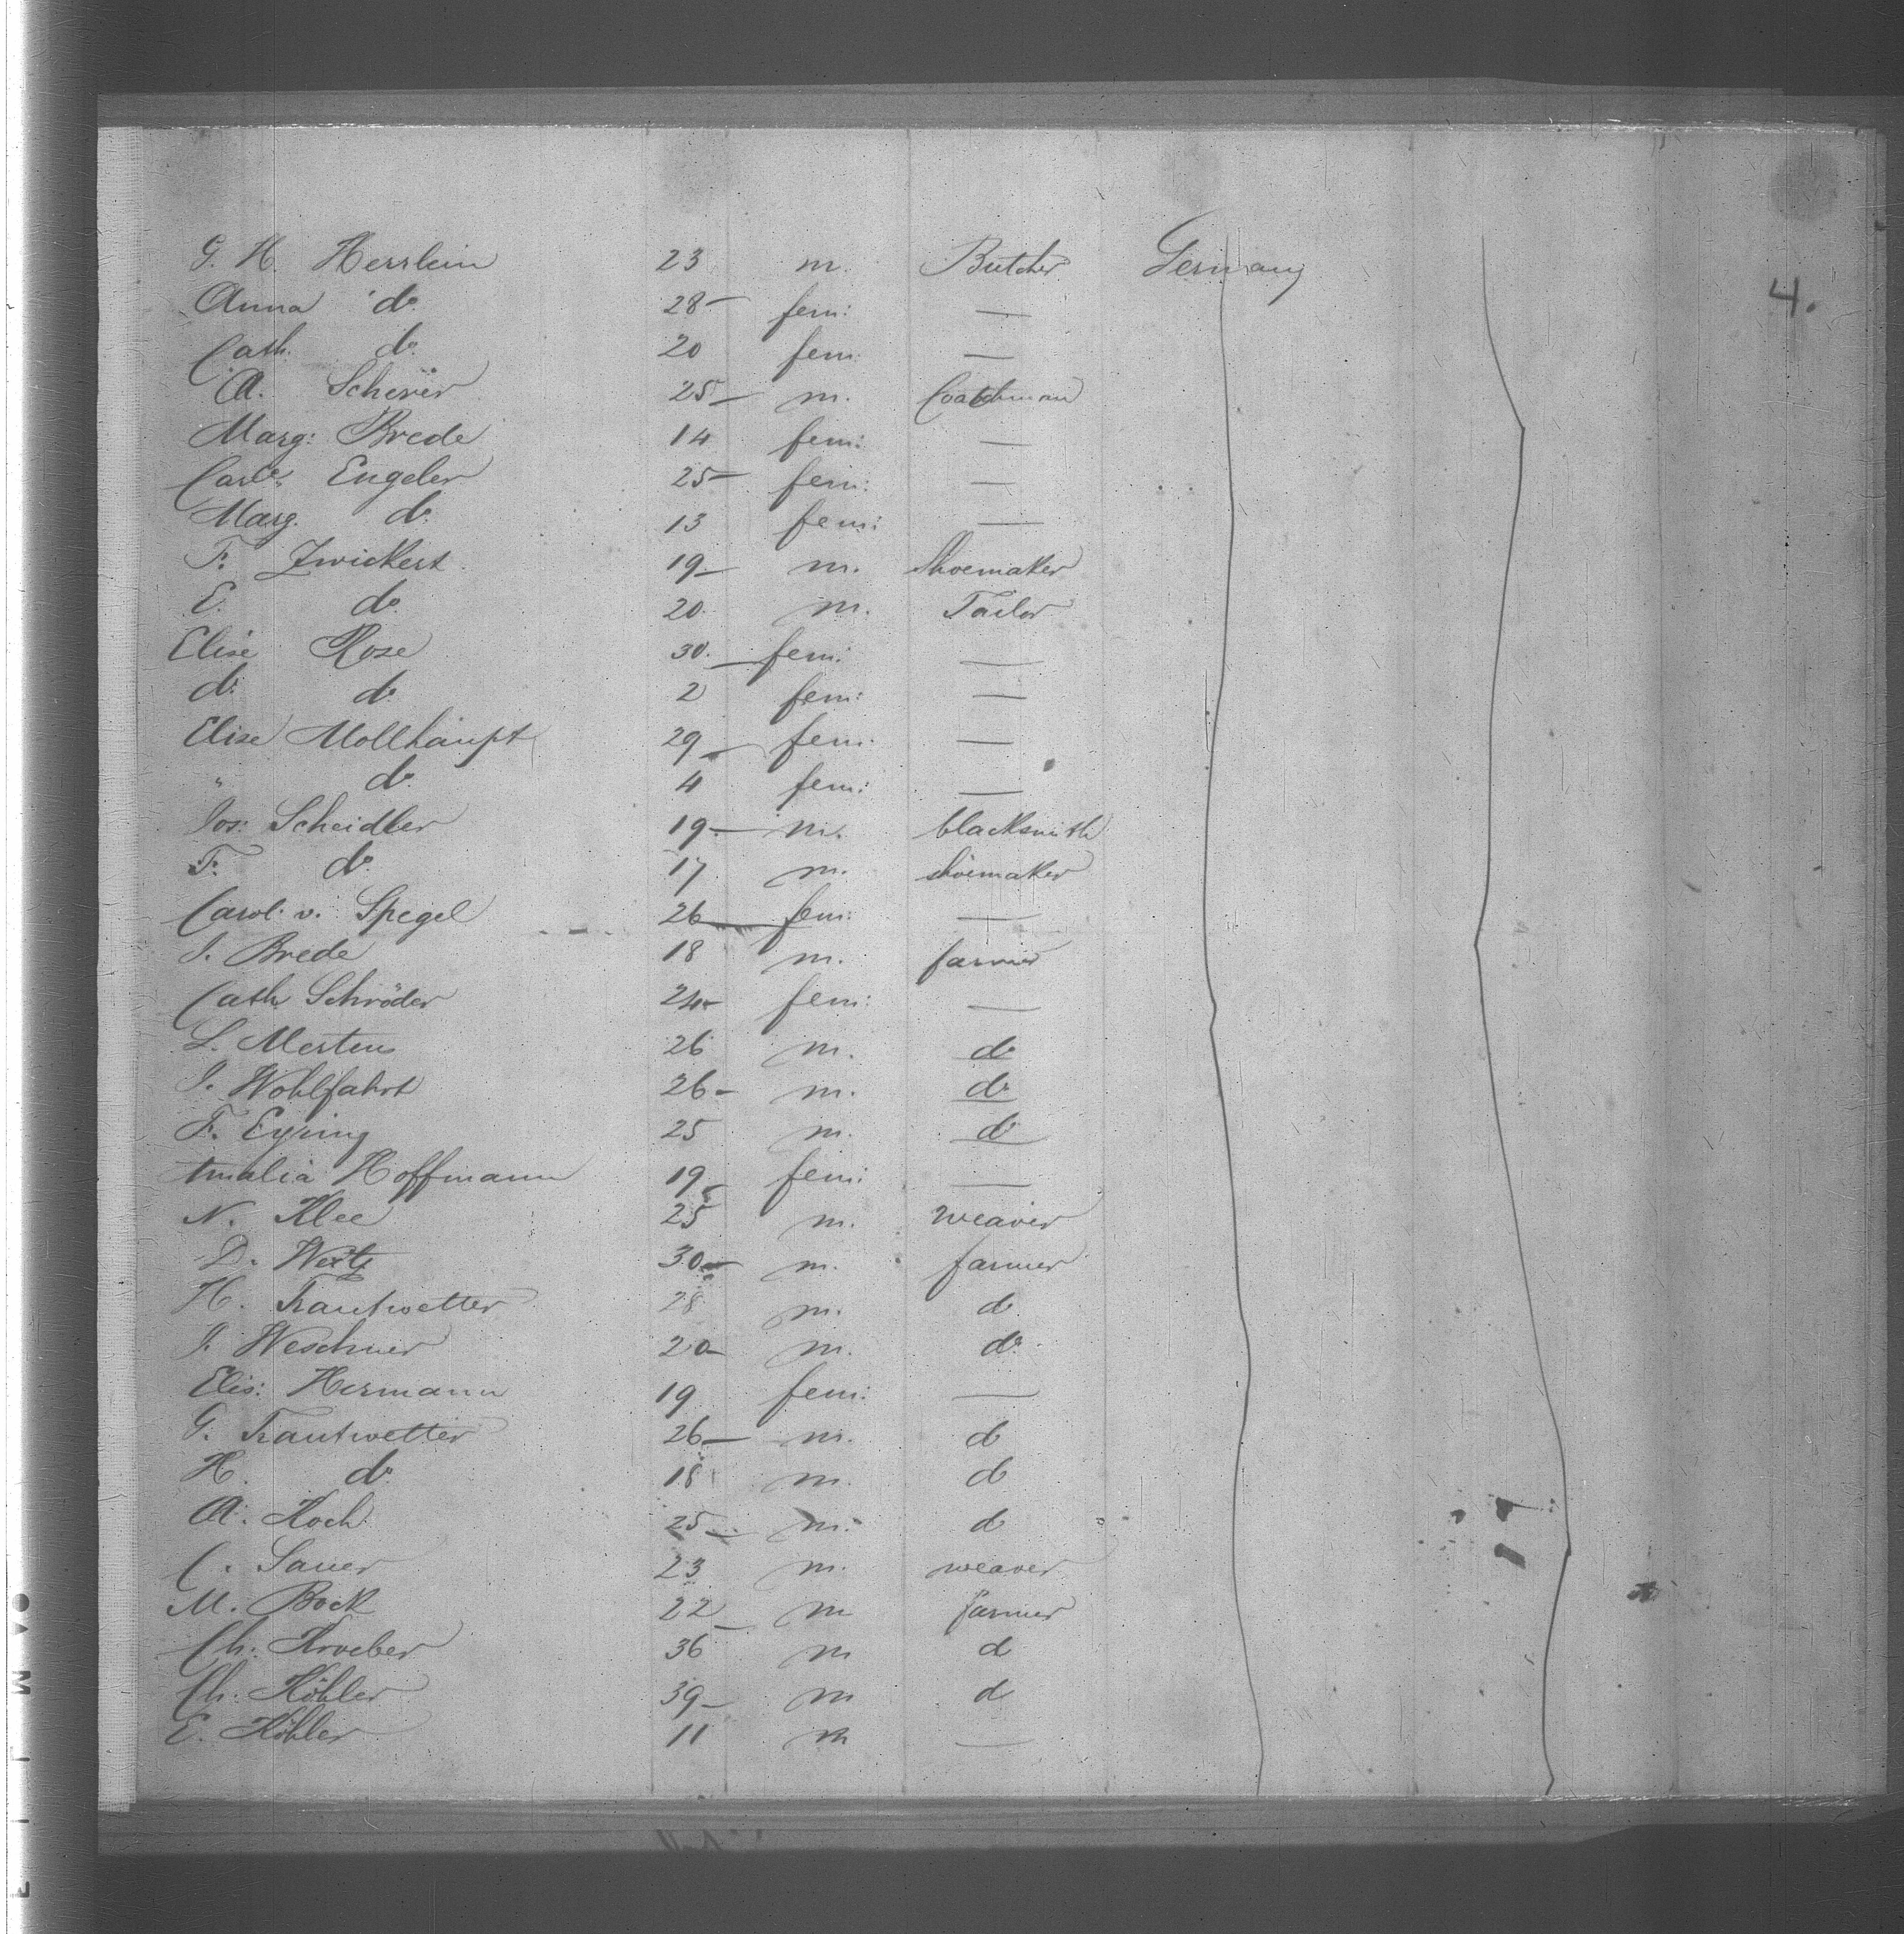 G. H. Herrlein 23 m. Butcher Germany
Anna do. 28 fem: —
4.
Cath. do. 20 fem: —
A. Scherër 25 m. Coatchman
Marg: Brede 14 fem: —
Carle. Engeler 25 fem: —
Marg. do. 13 fem: —
F. Zwickert 19 m. Shoemaker
E. do. 20 m. Tailor
Elise Rose 30. fem: —
do. do. 2 fem: —
Elise Mollhaupt 29 fem: —
" do. 4 fem: —
Jos: Scheidler 19 m. blacksmith
F. do. 17 m. shoemaker
Carol. v. Spegel 26 fem: —
J. Brede 18 m. farmer
Cath Schröder 24 fem: —
L. Mertens 26 m. do
J. Wohlfahrt 26 m. do
F. Eyring 25 m. do
Amalia Hoffmann 19 fem: —
N. Klee 25 m. weaver
D. 30 m. farmer
H. Trautvetter 28 m. do
J. Weschner 20 m. do.
Elis: Hermann 19 fem: —
G. Trautvetter 26 m. do
H. do. 18 m. do
A. Koch 25 m. do
C. Sauer 23 m. weaver
M. Bock 22 m farmer
Ch: Kroeber 36 m d
Ch: Köhler 39 m d
E. Köhler 11 m —